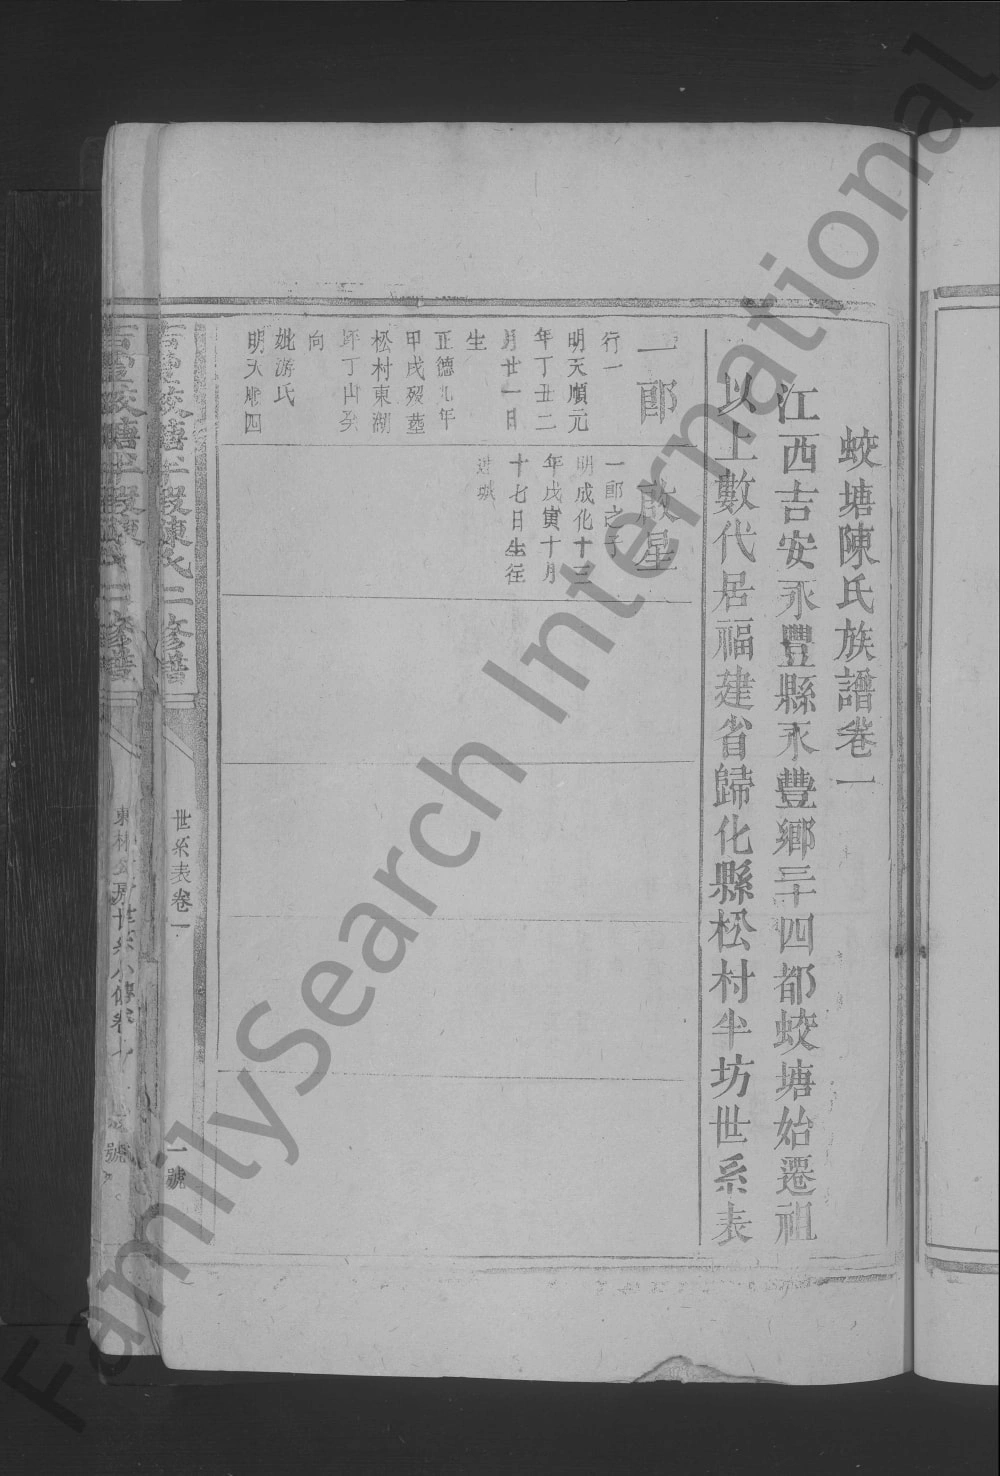 蛟塘陳氏族譜卷一
江西吉安永豐縣永豐鄉三十四都蛟塘始遷祖
以上數代居福建省歸化縣松村半坊世系表
一郎
行一
明天順元
年丁丑二
月廿一日
生
正德九年
甲戌歿葬
松村東湖
坪丁山癸
向
妣游氏
明天順四
啟星
一郎之子
明成化十三
年戊寅十月
十七日生往
世系表卷一
一號
陳氏二修譜
FamilySearch International